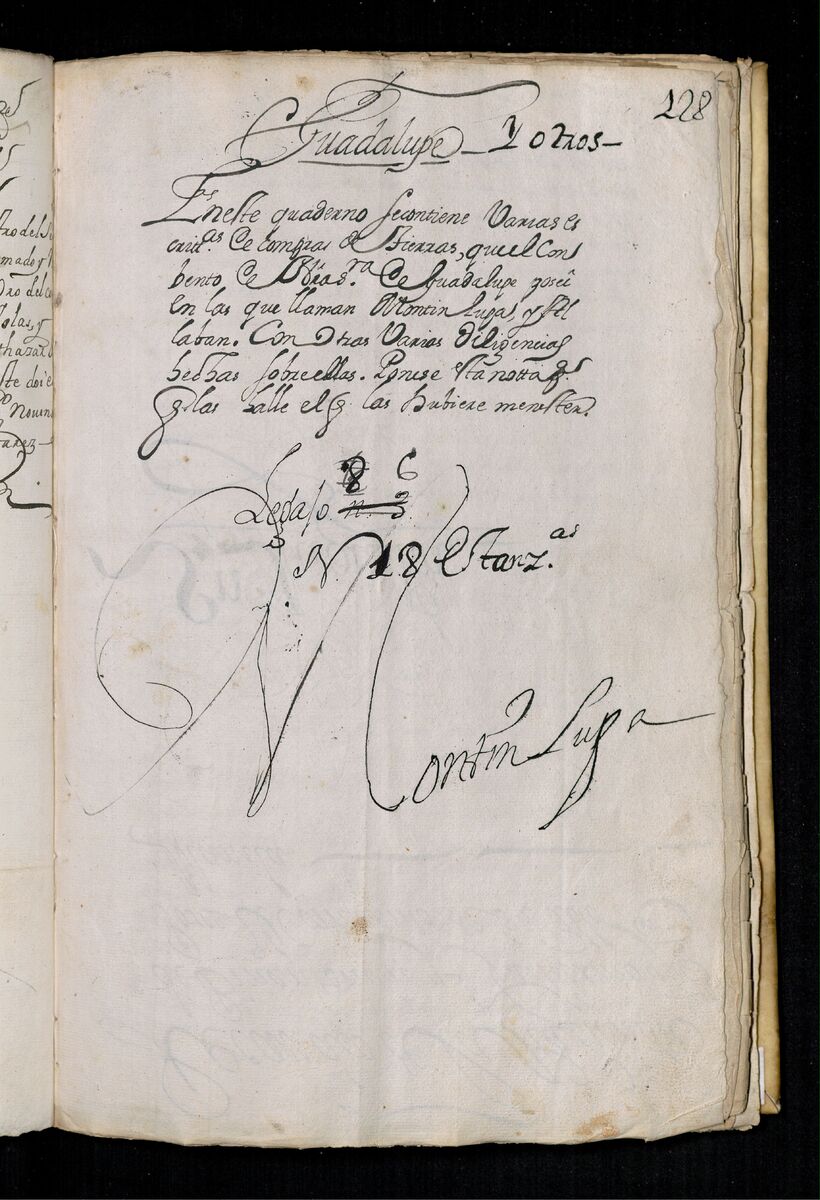 128
Guadalupe y otros
En este quaderno se contiene Varias es
crit.as de compras de Tierras, que el con
bento de Ntra Sra. de Guadalupe posei
en las que llaman Montin Lupa, y
laban. Con otras Varias diligencias
hechas sobre ellas. Ponese esta notta
q. las halle el q. las hubiere menester.
Legajo 8 6
n. 3.
N. 18 Estanz.as
Montin Lupa